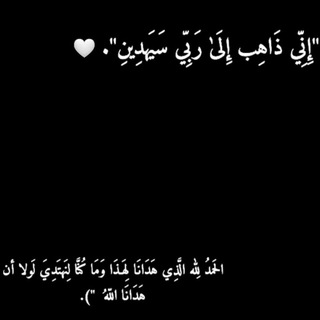 "إِنِّي ذَاهِب إِلَىٰ رَبِّي سَيَهدِينِ". 🤍
الحَمدُ لِلَّه الَّذِي هَدَانَا لِهَذَا وَمَا كُنَّا لِنَهتَدِيَ لَولا أن
هَدَانَا اللَّهُ ").